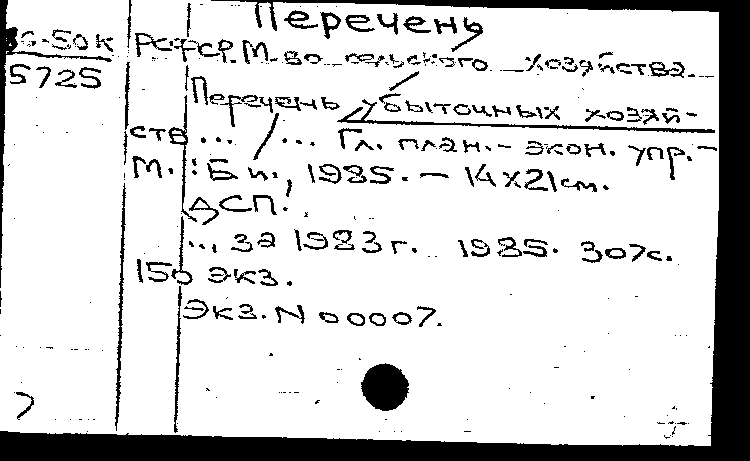 Перечень
86-50К
5725
РСФСР. М-во сельского хозяйства.
Перечень убыточных хозяй-
ств ... / ... Гл. план.- экон. упр. -
М. : Б.и., 1985. - 14х21см.
ДСП.
..., за 1983г. 1985. 307с.
150 экз.
Экз. N 00007.